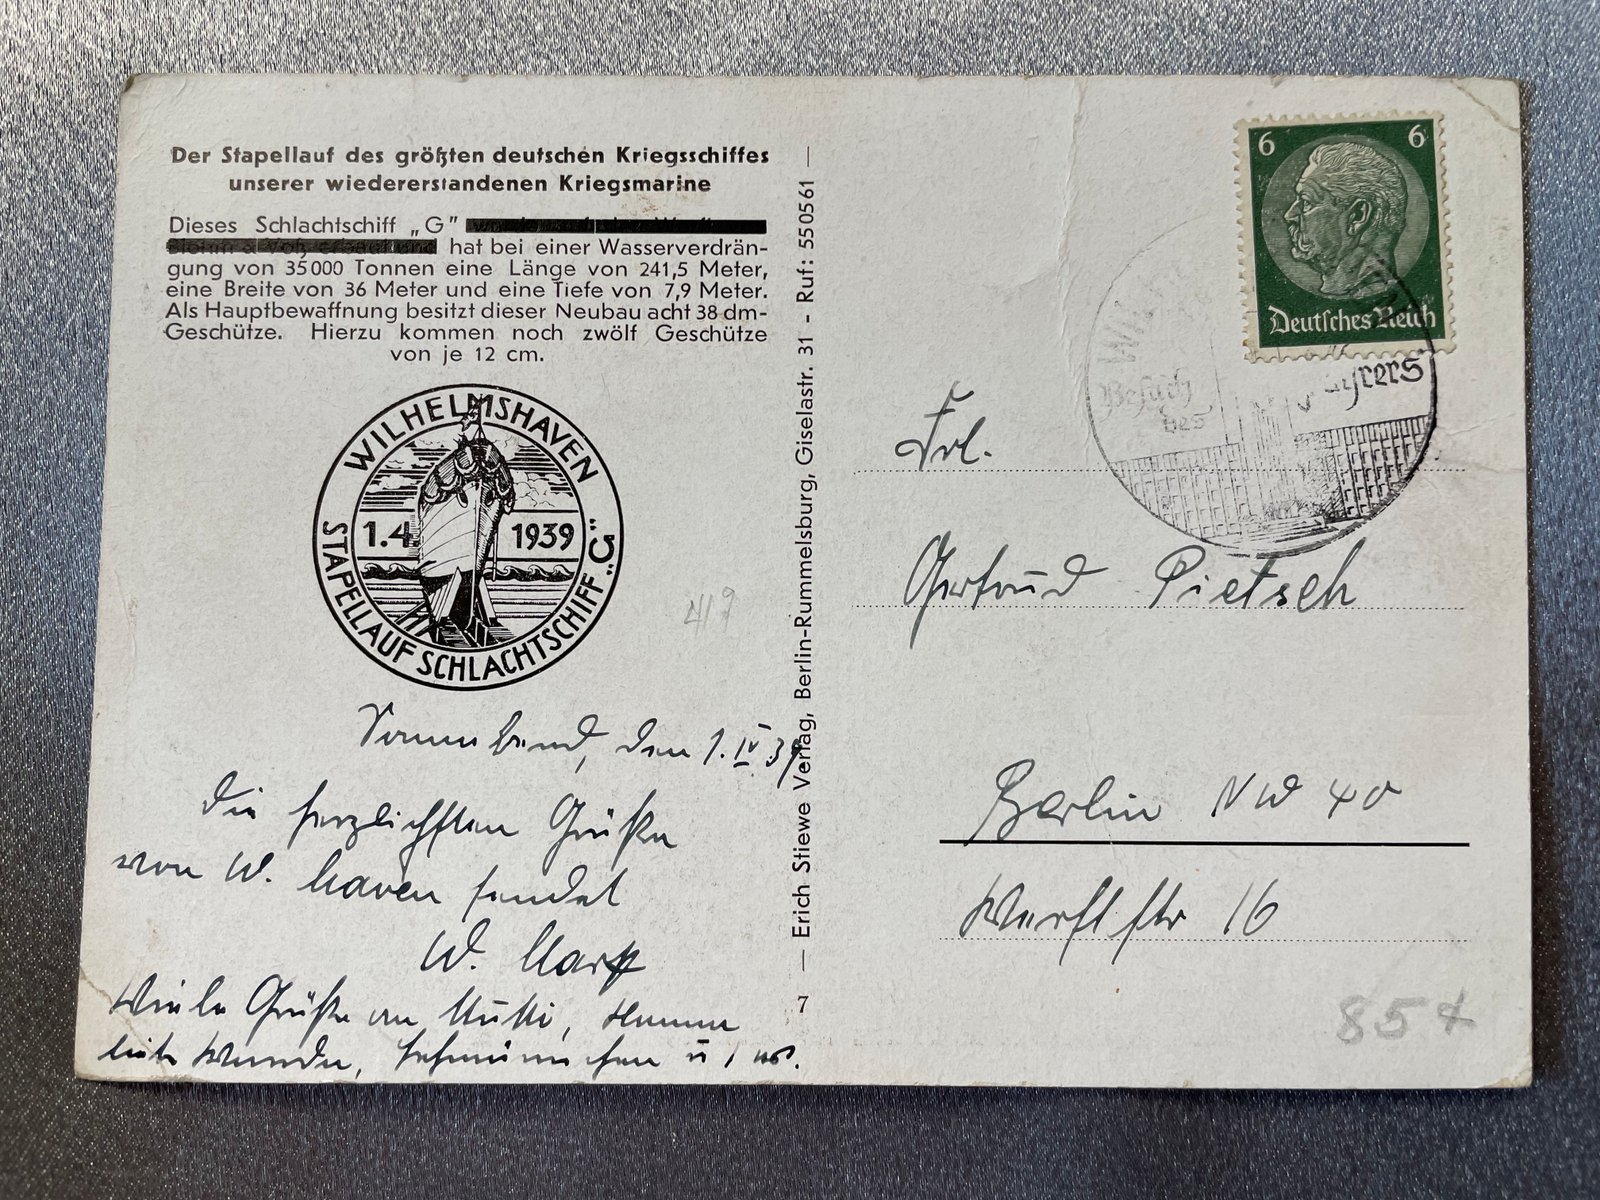 Der Stapellauf des größten deutschen Kriegsschiffes
unserer wiedererstandenen Kriegsmarine
Dieses Schlachtschiff „G"
hat bei einer Wasserverdrän-
gung von 35000 Tonnen eine Länge von 241,5 Meter,
eine Breite von 36 Meter und eine Tiefe von 7,9 Meter.
Als Hauptbewaffnung besitzt dieser Neubau acht 38 dm-
Geschütze. Hierzu kommen noch zwölf Geschütze
von je 12 cm.
WILHELMSHAVEN
1.4 1939
STAPELLAUF SCHLACHTSCHIFF „G"
419
Sonnabend, den 1.IV.39
Die herzlichsten Grüße
von W. haven sendet
W.
Viele Grüße an Mutti,
u.
— Erich Stiewe Verlag, Berlin-Rummelsburg, Giselastr. 31 - Ruf: 550561 —
7
6 6
Deutsches Reich
Besuch
des
Frl.
Gertrud Pietsch
Berlin NW 40
Werftstr 16
85